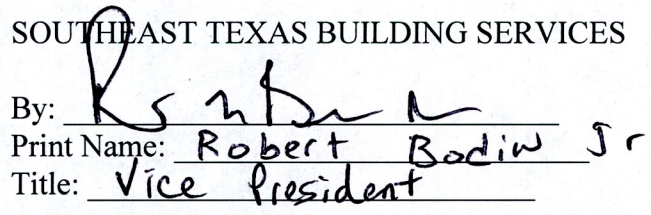 SOUTHEAST TEXAS BUILDING SERVICES
By:
Print Name: Robert Bodin Jr
Title: Vice President